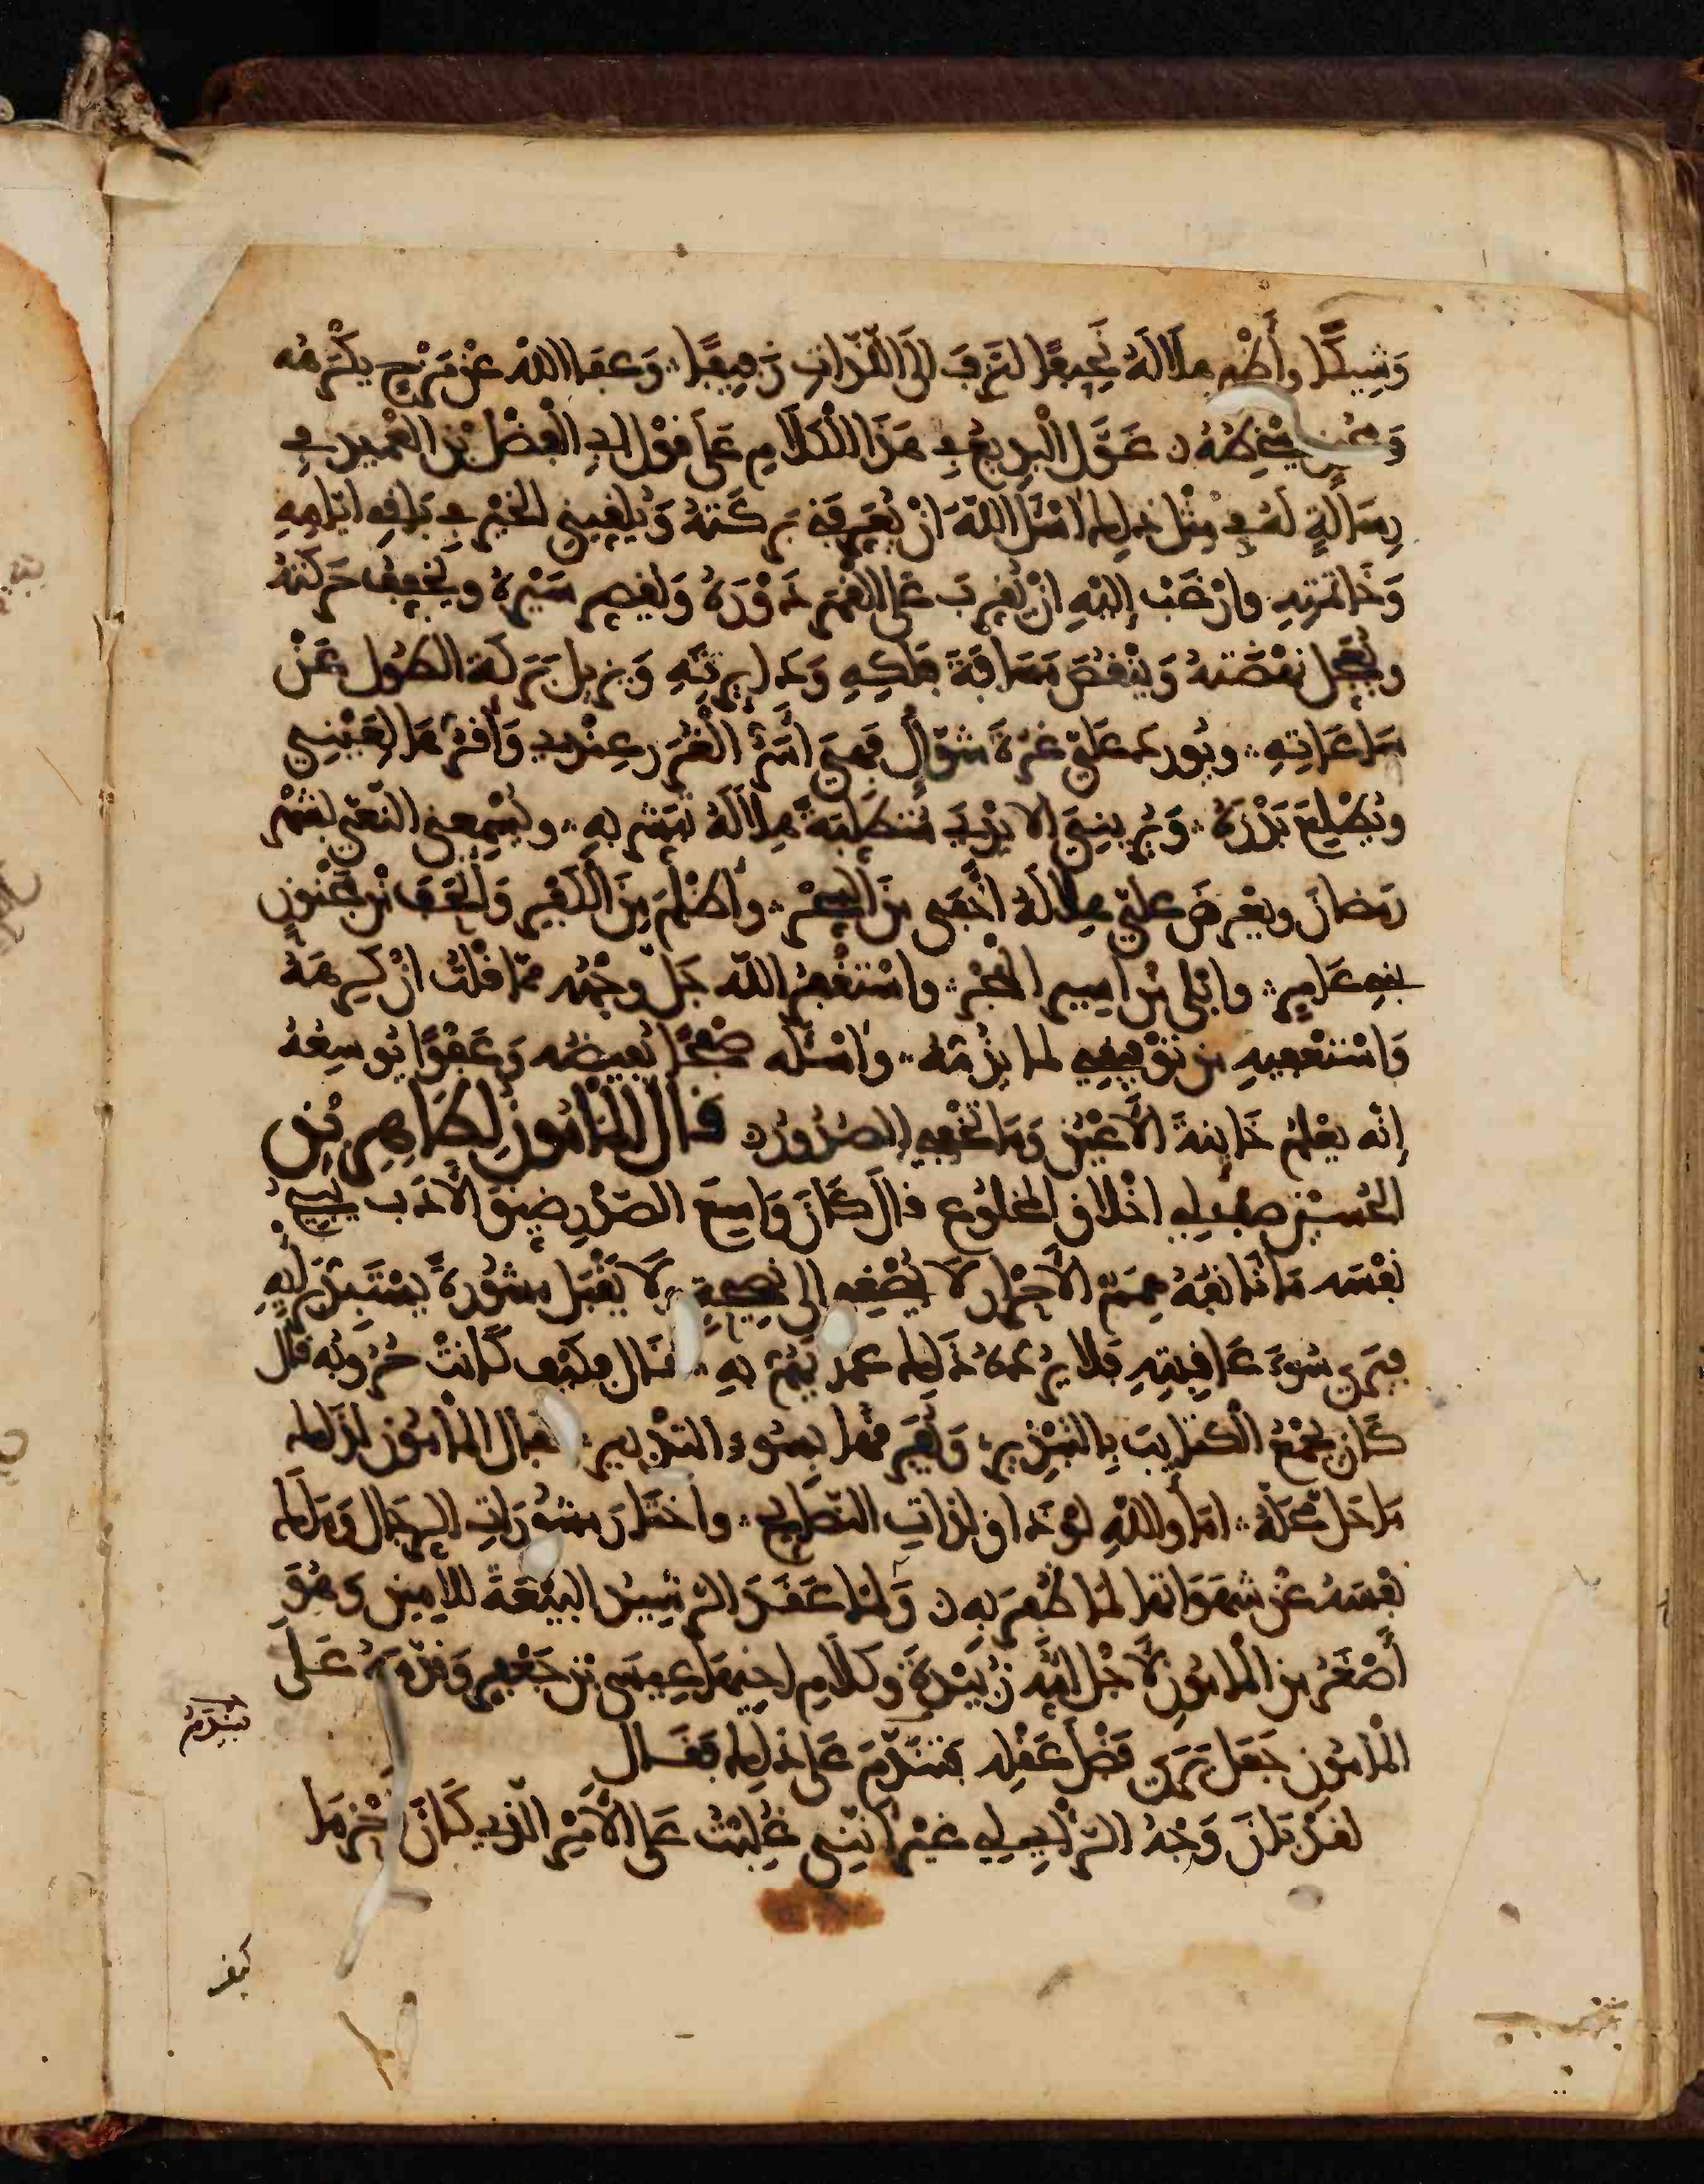 وَشِيكًا وأَظْهر هِلَالَهُ نَحِيفًا لتُزَفَّ إلَى اللّذّاتِ زَفِيفًا وَعَفَا اللّهُ عَنْ مَزْحٍ يكْرَهُهُ
وَمُجُونٍ يُسْخِطُهُ عَوَّلَ الْبَدِيعُ فِي هَذَا الْكَلَامِ عَلَى قَوْلِ أبي الْفَضْلِ بْنِ الْعَمِيدِ فِي
رِسَالَةٍ لَهُ فِي مِثْلِ ذلِكَ أسْئَلُ اللّهَ أنْ يُعَرِّفَنِي بَرَكَتَهُ وَيُلقّينِي الخَيْرَ فِي بَاقِي أيّامِهِ
وَخَاتمَتِهِ وارْغَبُ إلَيْهِ أنْ يُقَرِّبَ عَلَى الْقَمَرِ دَوْرَهُ وَيُقَصِّرَ سَيْرَهُ ويُخَفّفَ حَرَكَتَهُ
ويُعَجِّلَ نهْضَتَهُ وَيَنْقُصَ مَسَافَةَ فَلَكِهِ وَدَايِرَتِهِ وَيُزِيلَ بَرَكَةَ الطُّولِ عَنْ
سَاعَاتِهِ ويُورِدَ عَلَيَّ غُرَّةَ شَوّالٍ فَهِيَ أَسَرُّ الْغُرَرِ عِنْدِي وَأقَرُّهَا لِعَيْنِي
ويُطْلِعَ بَدْرَهُ وَيُرِيَنِيَ الايْدِيَ مُتَطَلِّبَةً هِلَالَهُ بِبِشْرٍ بِهِ ويُسْمِعَنِي النّعْيَ لِشَهْرِ
رَمَضَانَ ويَعْرِضَ عَلَيَّ هِلَالَهُ أَخْفَى مِنَ السِّحْرِ وأَظْلَمَ مِنَ الْكُفْرِ وَأنْحَفَ مِنْ مَجْنُونِ
بَنِي عَامِرٍ وابْلَى مِنْ اسِيرِ الهَجْرِ واسْتَغْفِرُ اللّهَ جَلَّ وجْهُهُ مِمّا قُلْتُ إنْ كَرِهَهُ
وَاسْتَعْفِيهِ مِنْ تَوْفِيقِي لِمَا يَذُمُّهُ واسْئَلُهُ صَفْحًا يُفِيضُهُ وَعَفْوًا يُوسِعُهُ
إنّهُ يعْلَمُ خَاينَةَ الأَعْيُنِ وَمَا تُخْفِي الصُّدُورُ قَالَ المَأمُونُ لِطَاهِرِ بْنِ
الحُسَيْنِ صِفْ لِي اخْلَاقَ المخْلُوعِ قالَ كَانَ وَاسِعَ الصّدْرِ ضيّقَ الأَدَبِ يُبِيحُ
نَفْسَهُ مَا تَانَفُهُ هِمَمُ الأَحْرَارِ لَا يُصْغِي إلى نَصِيحَةٍ وَلَا يَقْبَلُ مَشُورَةً يَسْتَبِدُّ بِرَأيِهِ
فيَرَى سُوءَ عَاقِبَتِهِ فَلَا يَرُدُّهُ ذَلِكَ عَمَّا يَهُمُّ بِهِ قَالَ فَكَيْفَ كَانَتْ حُرُوبُهُ قَالَ
كَانَ يَجْمَعُ الْكَتَايِبَ بِالتَّبْذِيرِ وَيُفَرِّقُهَا بِسُوءِ التَّدْبِيرِ فَقَالَ المَأمُونُ لِذَلِكَ
مَا حَلَّ مَحَلَّهُ امَا واللّهِ لَوْ ذَاقَ لَذَّاتِ النّصَايحِ واخْتَارَ مَشُورَاتِ الرِّجَالِ وَمَلَكَ
نَفْسَهُ عَنْ شَهَوَاتِهَا لَمَا ظُفِرَ بِهِ وَلَمَّا عَقَدَ الرَّشِيدُ البَيْعَةَ للأمِينِ وَهُوَ
أَصْغَرُ مِنَ المَأمُونِ لأَجْلِ أُمِّهِ زُبَيْدَةَ وَكَلَامِ اخِيهَا عِيسَى بْنِ جَعْفَرٍ وَقَدَّمَهُ عَلَى
المَأمُونِ جَعَلَ يَرَى فَضْلَ عَقْلِهِ فَيَتَنَدّمُ عَلَى ذلِكَ فَقَالَ
لَقَدْ بَانَ وَجْهُ الرَّأيِ لِي غَيْرَ أنَّنِي غُلِبْتُ عَلَى الأَمْرِ الّذِي كَانَ أحْزَمَا
فيندم
كيف